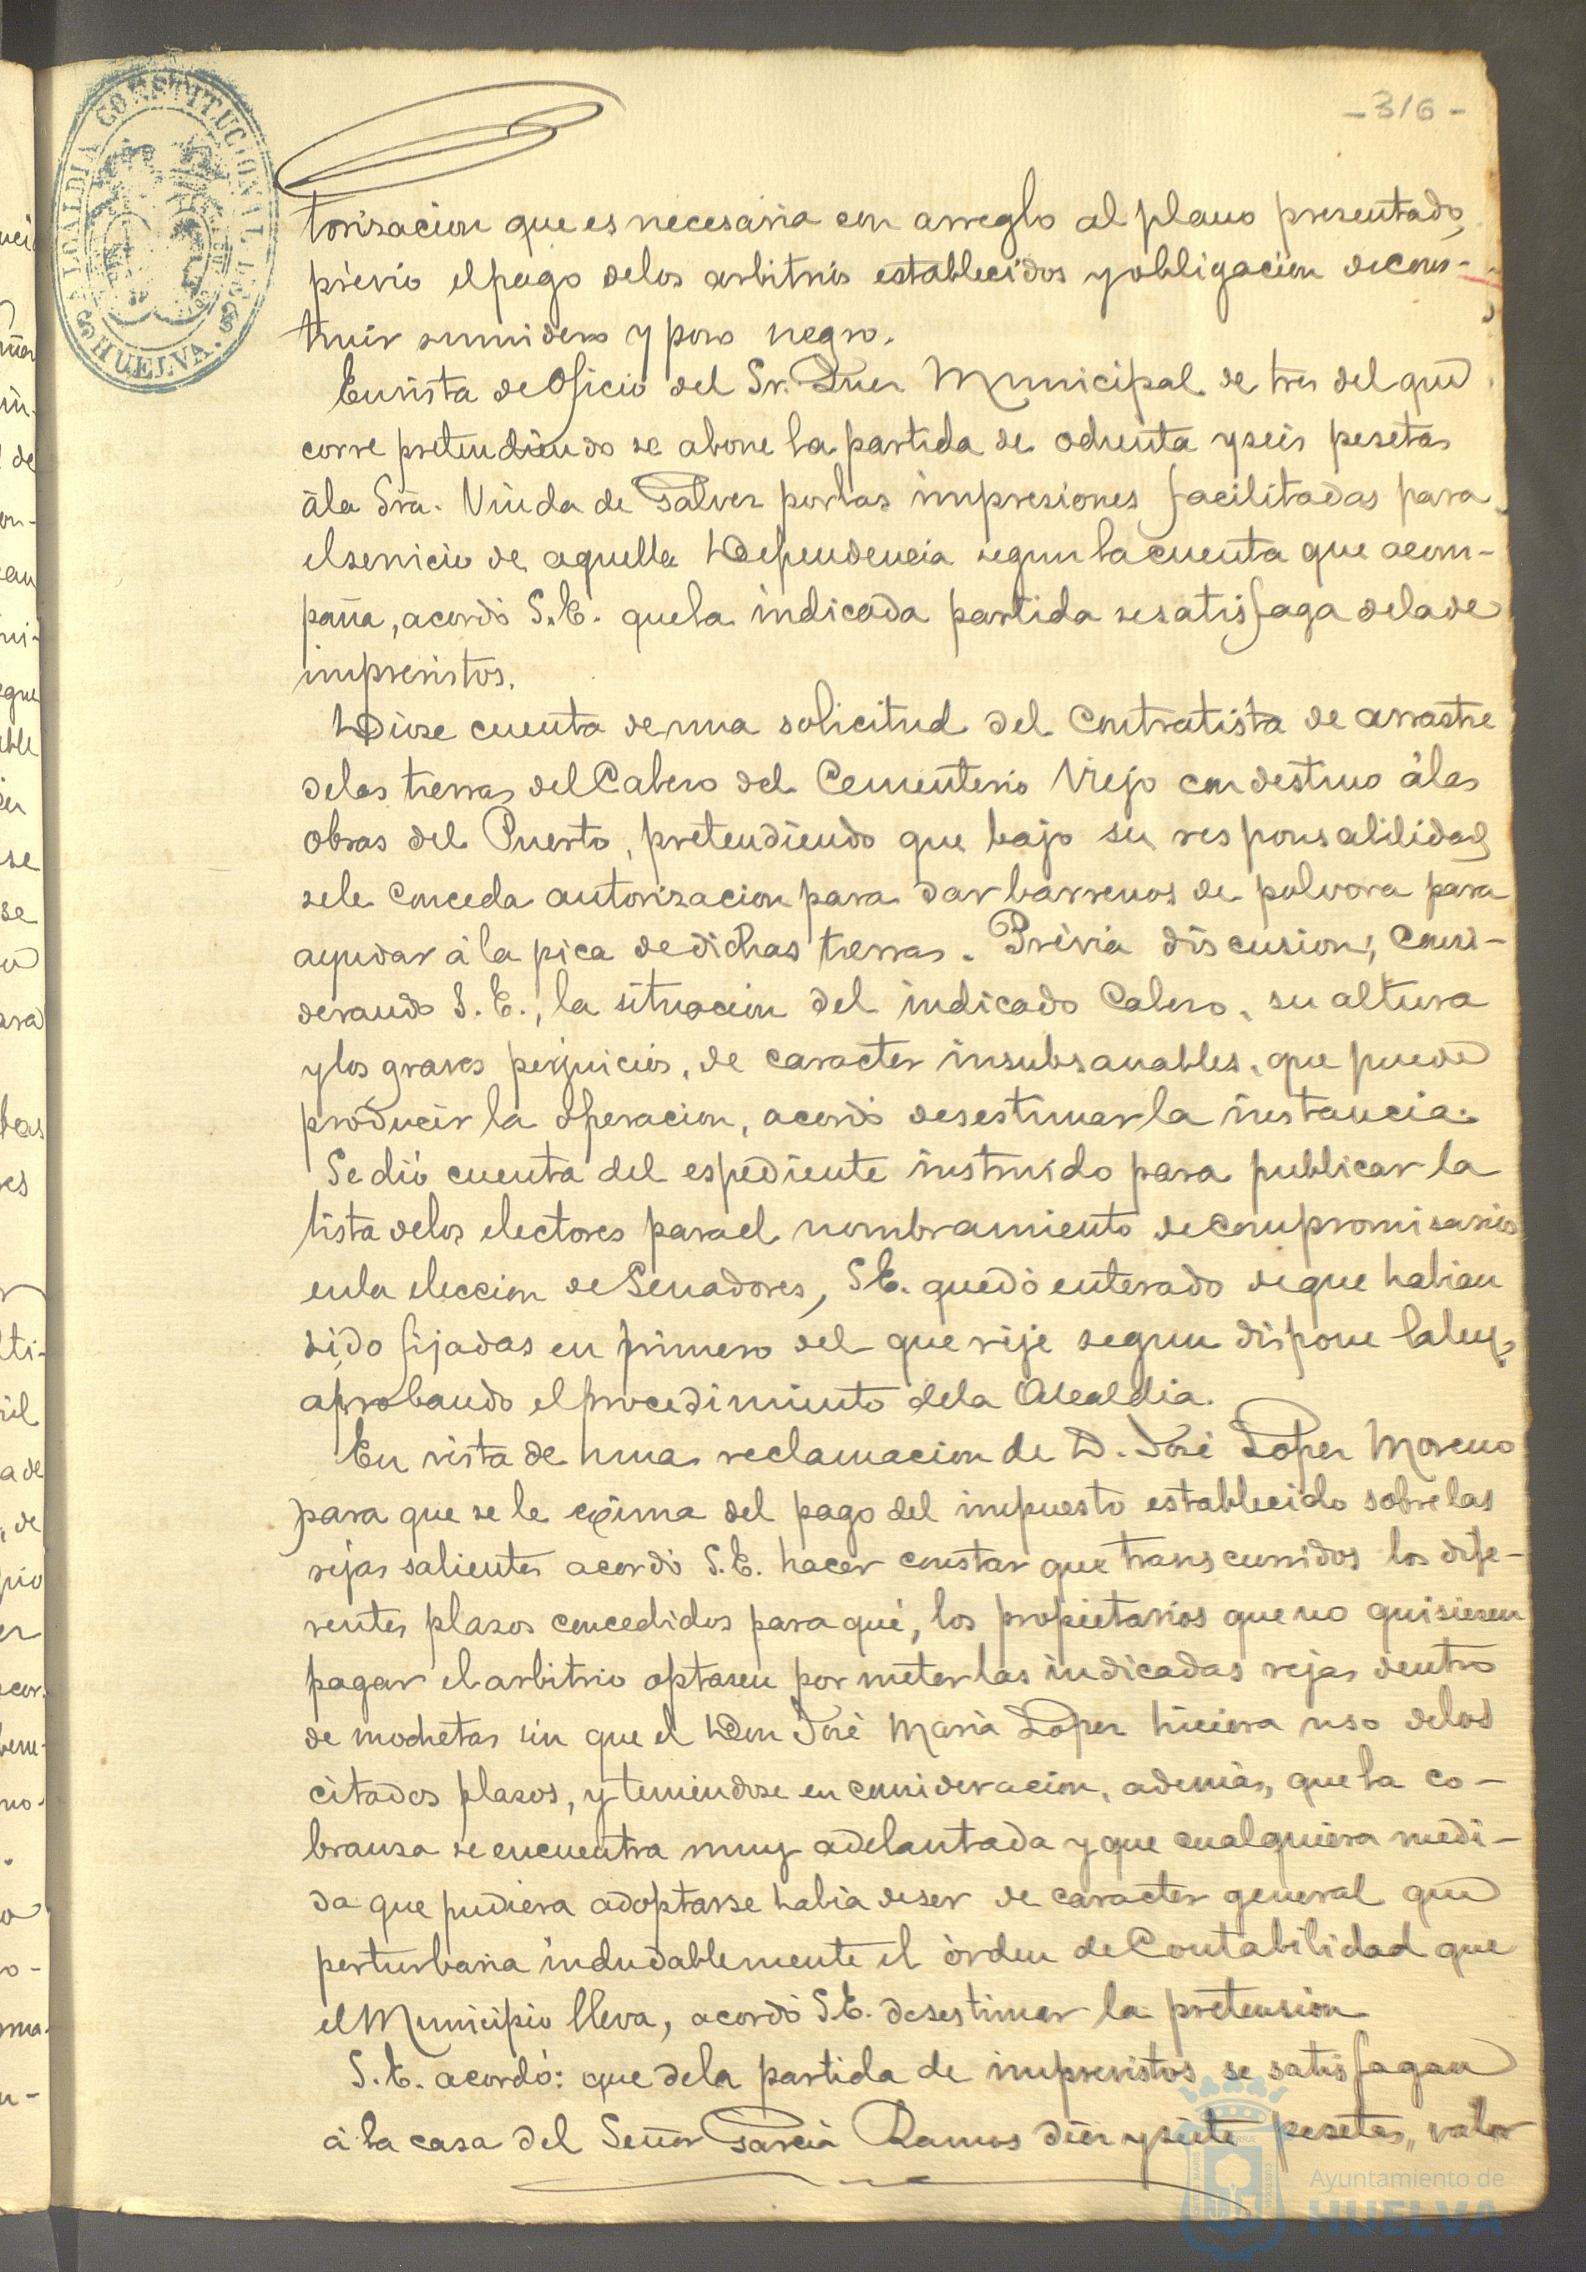 ALCALDIA CONSTITUCIONAL DE HUELVA
-316-
torizacion que es necesaria con arreglo al plano presentado,
prévio el pago de los arbitrios establecidos y obligacion de cons-
truir sumidero y pozo negro.
En vista de Oficio del Sr. Juez Municipal de tres del que
corre pretendiendo se abone la partida de ochenta y seis pesetas
á la Sra. Viuda de Galvez por las impresiones facilitadas para
el servicio de aquella Dependencia segun la cuenta que acom-
paña, acordó S.E. que la indicada partida se satisfaga de la de
imprevistos.
Dióse cuenta de una solicitud del Contratista de arrastre
de las tierras del Cabezo del Cementerio Viejo con destino á las
obras del Puerto, pretendiendo que bajo su responsabilidad
se le conceda autorizacion para dar barrenos de polvora para
ayudar á la pica de dichas tierras. Prévia discusion, consi-
derando S.E., la situacion del indicado Cabezo, su altura
y los graves perjuicios, de caracter insubsanables, que puede
producir la operacion, acordó desestimar la instancia.
Se dió cuenta del espediente instruido para publicar la
lista de los electores para el nombramiento de compromisarios
en la eleccion de Senadores, S.E. quedó enterado de que habian
sido fijadas en primero del que rije segun dispone la ley,
aprobando el procedimiento de la Alcaldia.
En vista de una reclamacion de D. José Lopez Moreno
para que se le exima del pago del impuesto establecido sobre las
rejas salientes acordó S.E. hacer constar que transcurridos los dife-
rentes plazos concedidos para qué, los propietarios que no quisiesen
pagar el arbitrio optasen por meter las indicadas rejas dentro
de mochetas sin que el Don José Maria Lopez hiciera uso de los
citados plazos, y teniendose en consideracion, además, que la co-
branza se encuentra muy adelantada y que cualquiera medi-
da que pudiera adoptarse habia de ser de caracter general que
perturbaria indudablemente el órden de Contabilidad que
el Municipio lleva, acordó S.E. desestimar la pretension
S.E. acordó: que de la partida de imprevistos se satisfagan
á la casa del Señor Garcia Ramos diez y siete pesetas, valor
Ayuntamiento de
HUELVA